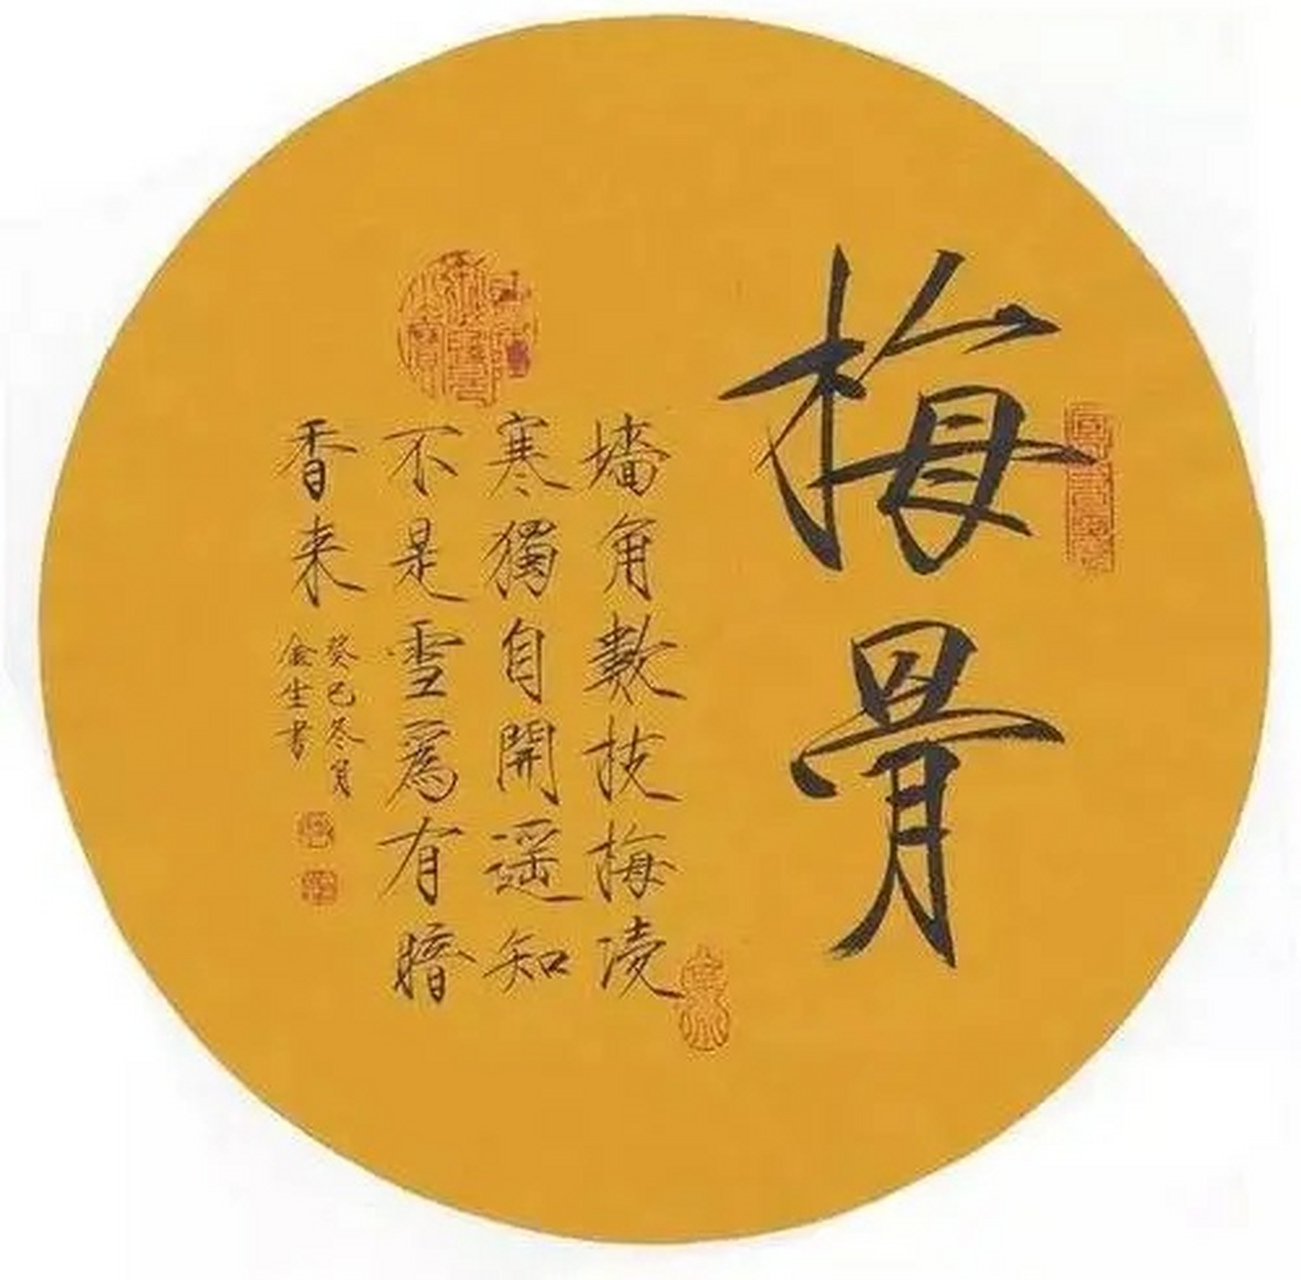 梅骨
墻角數枝梅凌
寒獨自開遥知
不是雪為有暗
香来
癸巳冬月
金生书